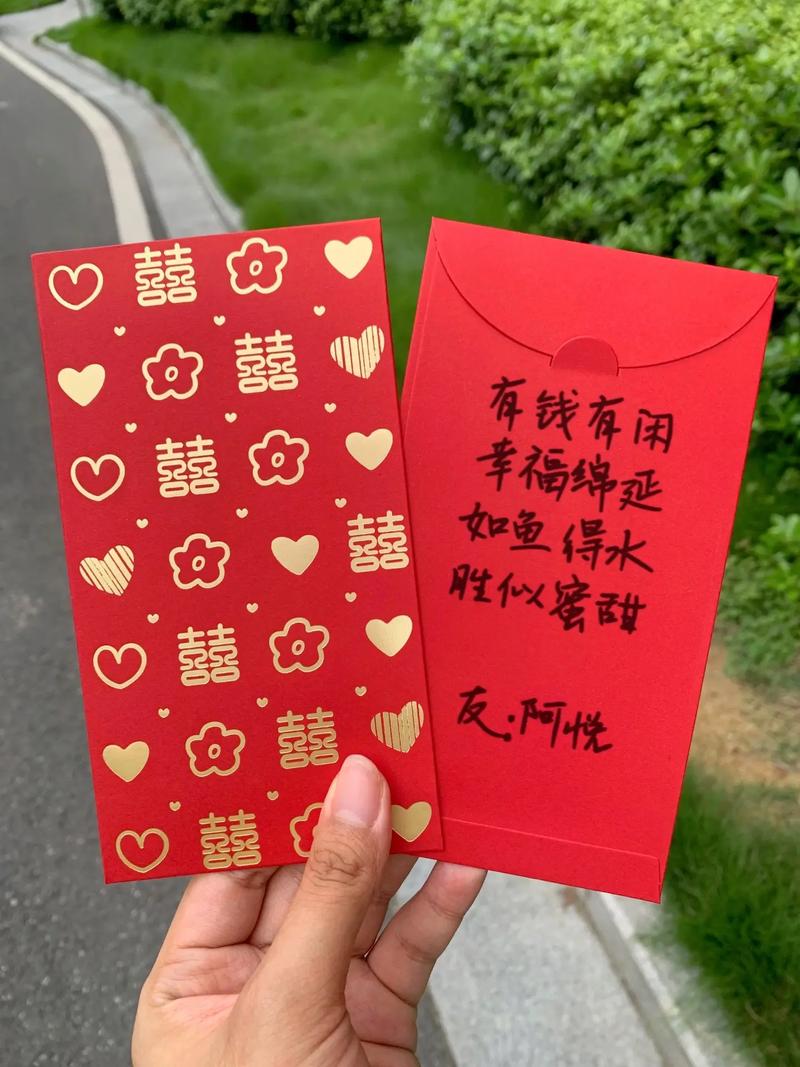 囍
囍
囍
囍
囍
囍
囍
有钱有闲
幸福绵延
如鱼得水
胜似蜜甜
友·阿悦